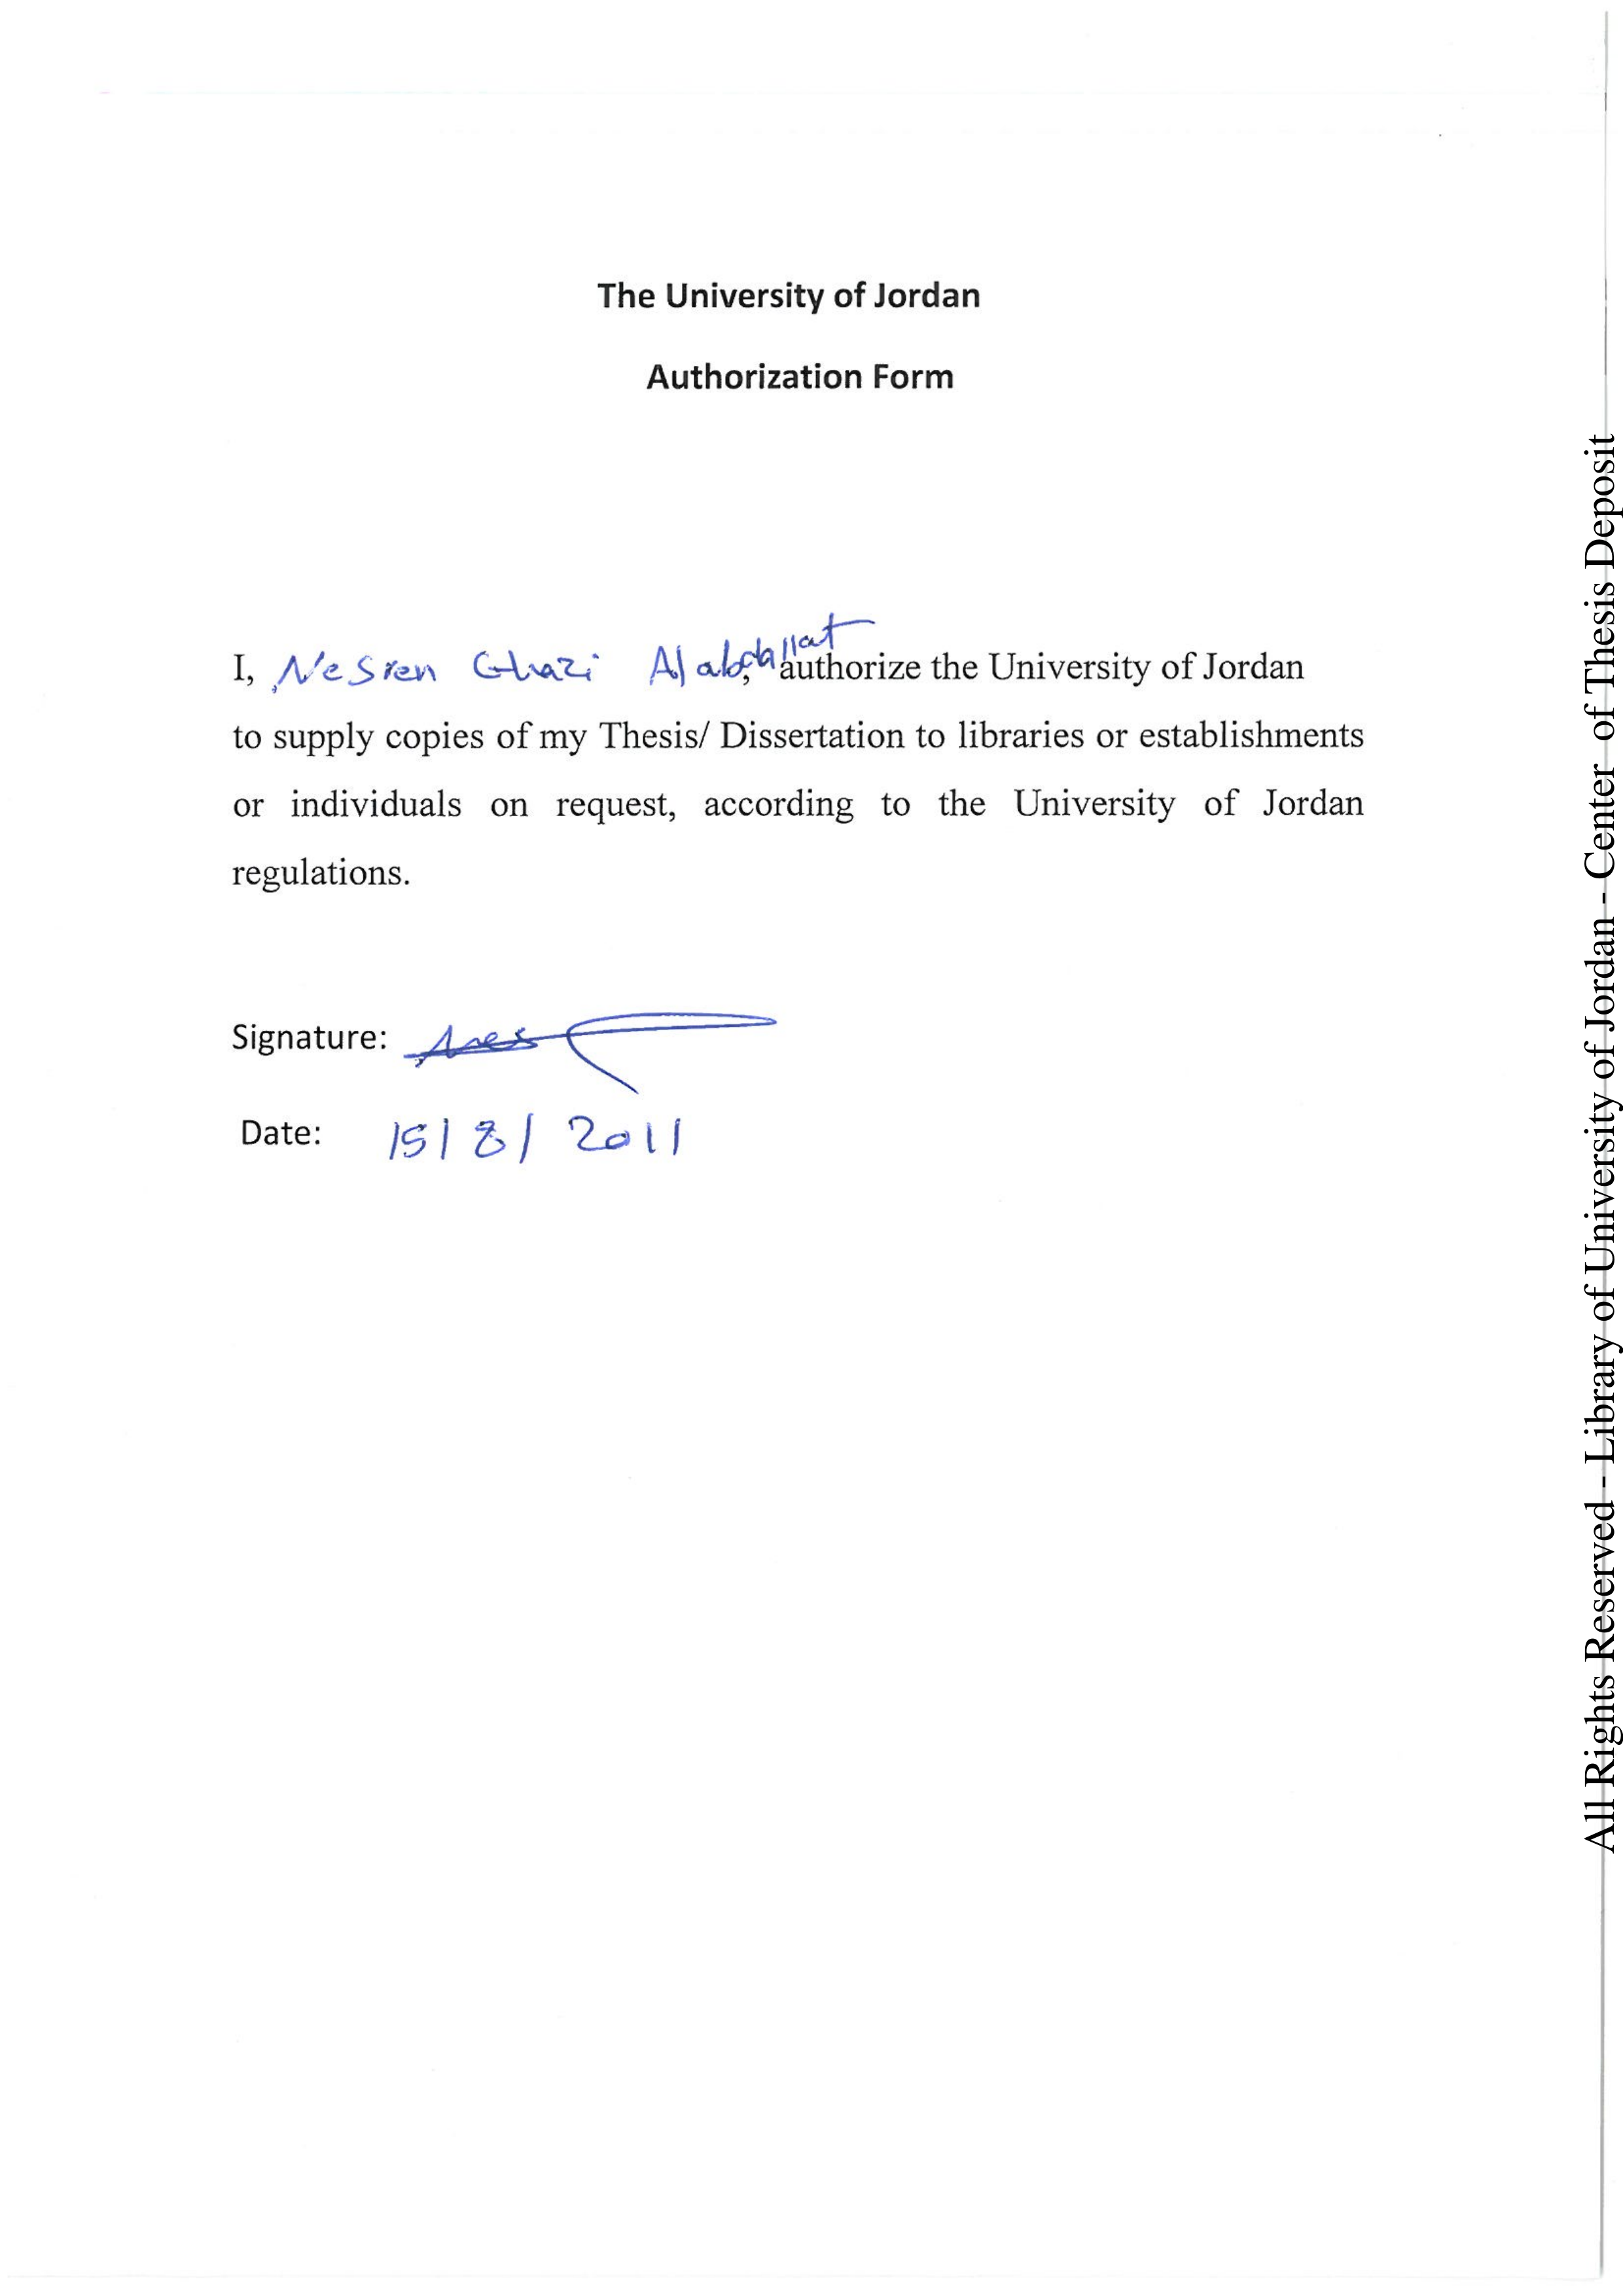 The University of Jordan
Authorization Form
I, Nesren Ghazi Alabdallat, authorize the University of Jordan
to supply copies of my Thesis/ Dissertation to libraries or establishments
or individuals on request, according to the University of Jordan
regulations.
Signature:
Date: 15/8/2011
All Rights Reserved - Library of University of Jordan - Center of Thesis Deposit